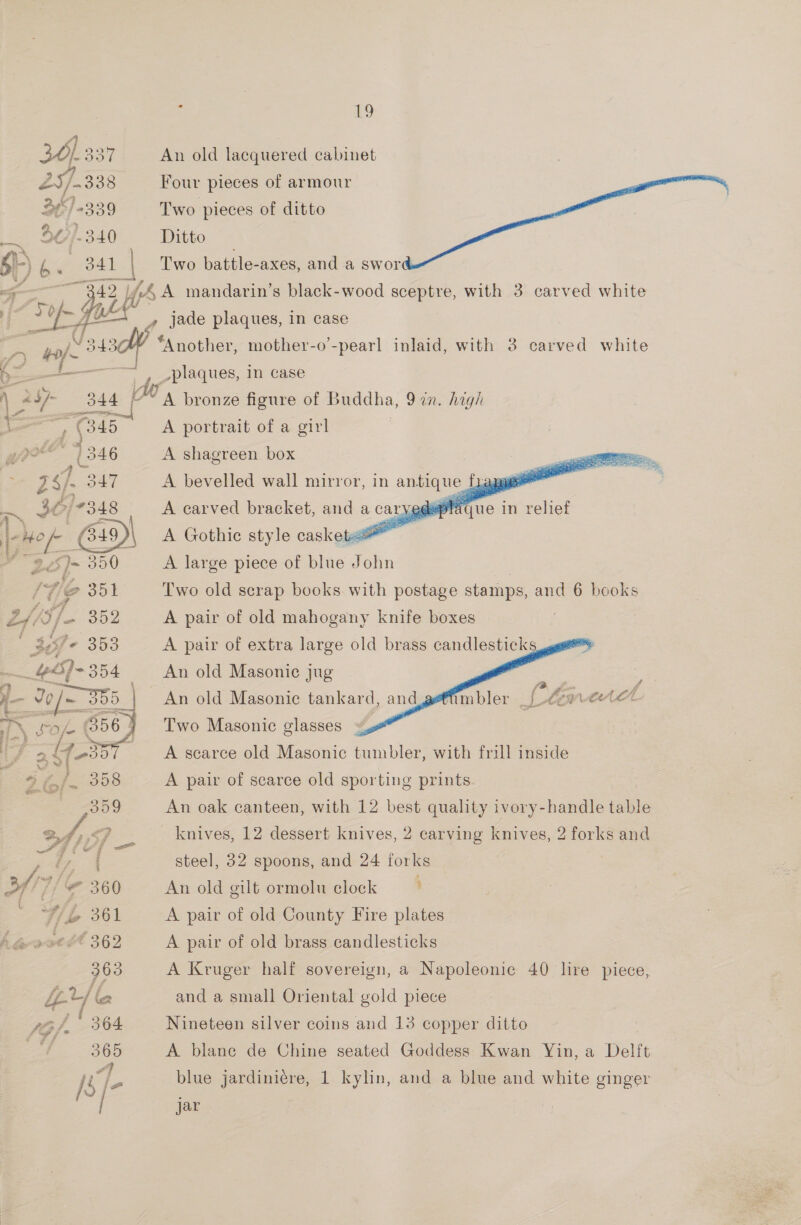 19
30/- 337 An old lacquered cabinet
25/- 338 Four pieces of armour
339 Two pieces of ditto
340 Ditto
341 Two battle-axes, and a sword
342 A mandarin's black-wood sceptre, with 3 carved white
jade plaques, in case
343 *Another, mother-o'-pearl inlaid, with 3 carved white
plaques, in case
25/- 344 A bronze figure of Buddha, 9 in. high
345 A portrait of a girl
346 A shagreen box
347 A bevelled wall mirror, in antique
348 A carved bracket, and a in relief
349 A Gothic style casket
350 A large piece of blue John
351 Two old scrap books with postage stamps, and 6 books
352 A pair of old mahogany knife boxes
353 A pair of extra large old brass candlesticks
354 An old Masonic jug
355 An old Masonic tankard, and
356 Two Masonic glasses
357 A scarce old Masonic tumbler, with frill inside
358 A pair of scarce old sporting prints
359 An oak canteen, with 12 best quality ivory-handle table
knives, 12 dessert knives, 2 carving knives, 2 forks and
steel, 32 spoons, and 24 forks
360 An old gilt ormolu clock
361 A pair of old County Fire plates
362 A pair of old brass candlesticks
363 A Kruger half sovereign, a Napoleonic 40 lire piece,
and a small Oriental gold piece
364 Nineteen silver coins and 13 copper ditto
365 A blanc de Chine seated Goddess Kwan Yin, a Delft
blue jardinière, 1 kylin, and a blue and white ginger
jar